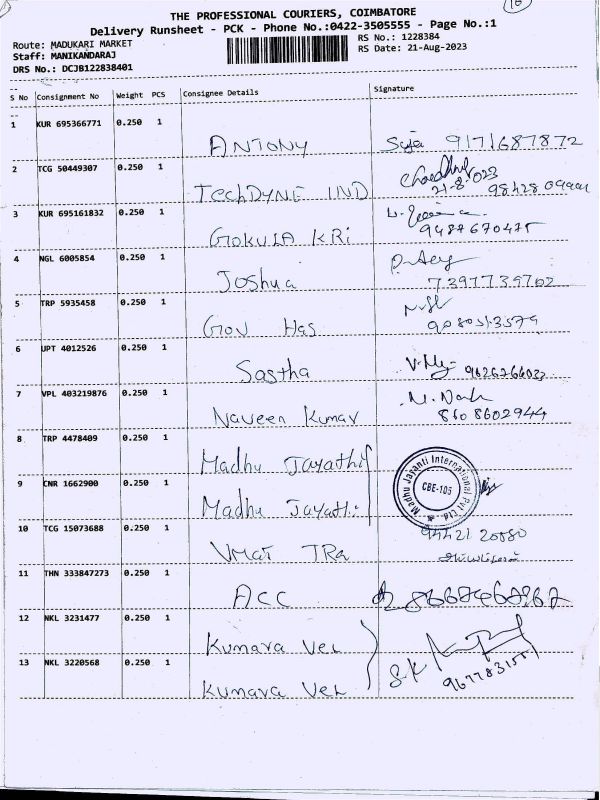 16
THE PROFESSIONAL COURIERS, COIMBATORE
Delivery Runsheet - PCK - Phone No.:0422-3505555 - Page No.:1
Route: MADUKARI MARKET
RS No.: 1228384
Staff: MANIKANDARAJ
RS Date: 21-Aug-2023
DRS No.: DCJB122838401
S No Consignment No Weight PCS Consignee Details Signature
1 KUR 695366771 0.250 1
ANTONY 9171687872
2 TCG 50449307 0.250 1
TechDYNE IND 21-8-2023
3 KUR 695161832 0.250 1
GOKULA KRi 9487670475
4 NGL 6005854 0.250 1
Joshua 7397739702
5 TRP 5935458 0.250 1
Gov Has 9080513579
6 UPT 4012526 0.250 1
Sastha
7 VPL 403219876 0.250 1
Naveen Kumar 8608602944
8 TRP 4478409 0.250 1
Madhu Jayathi
9 CNR 1662900 0.250 1
Madhu Jayanti International Pvt Ltd
CBE-105
Madhu Jayathi
10 TCG 15073688 0.250 1
94421 20580
UMAI TRa
11 THN 333847273 0.250 1
ACC
12 NKL 3231477 0.250 1
Kumara Vel
13 NKL 3220568 0.250 1
S.K
Kumara Vel